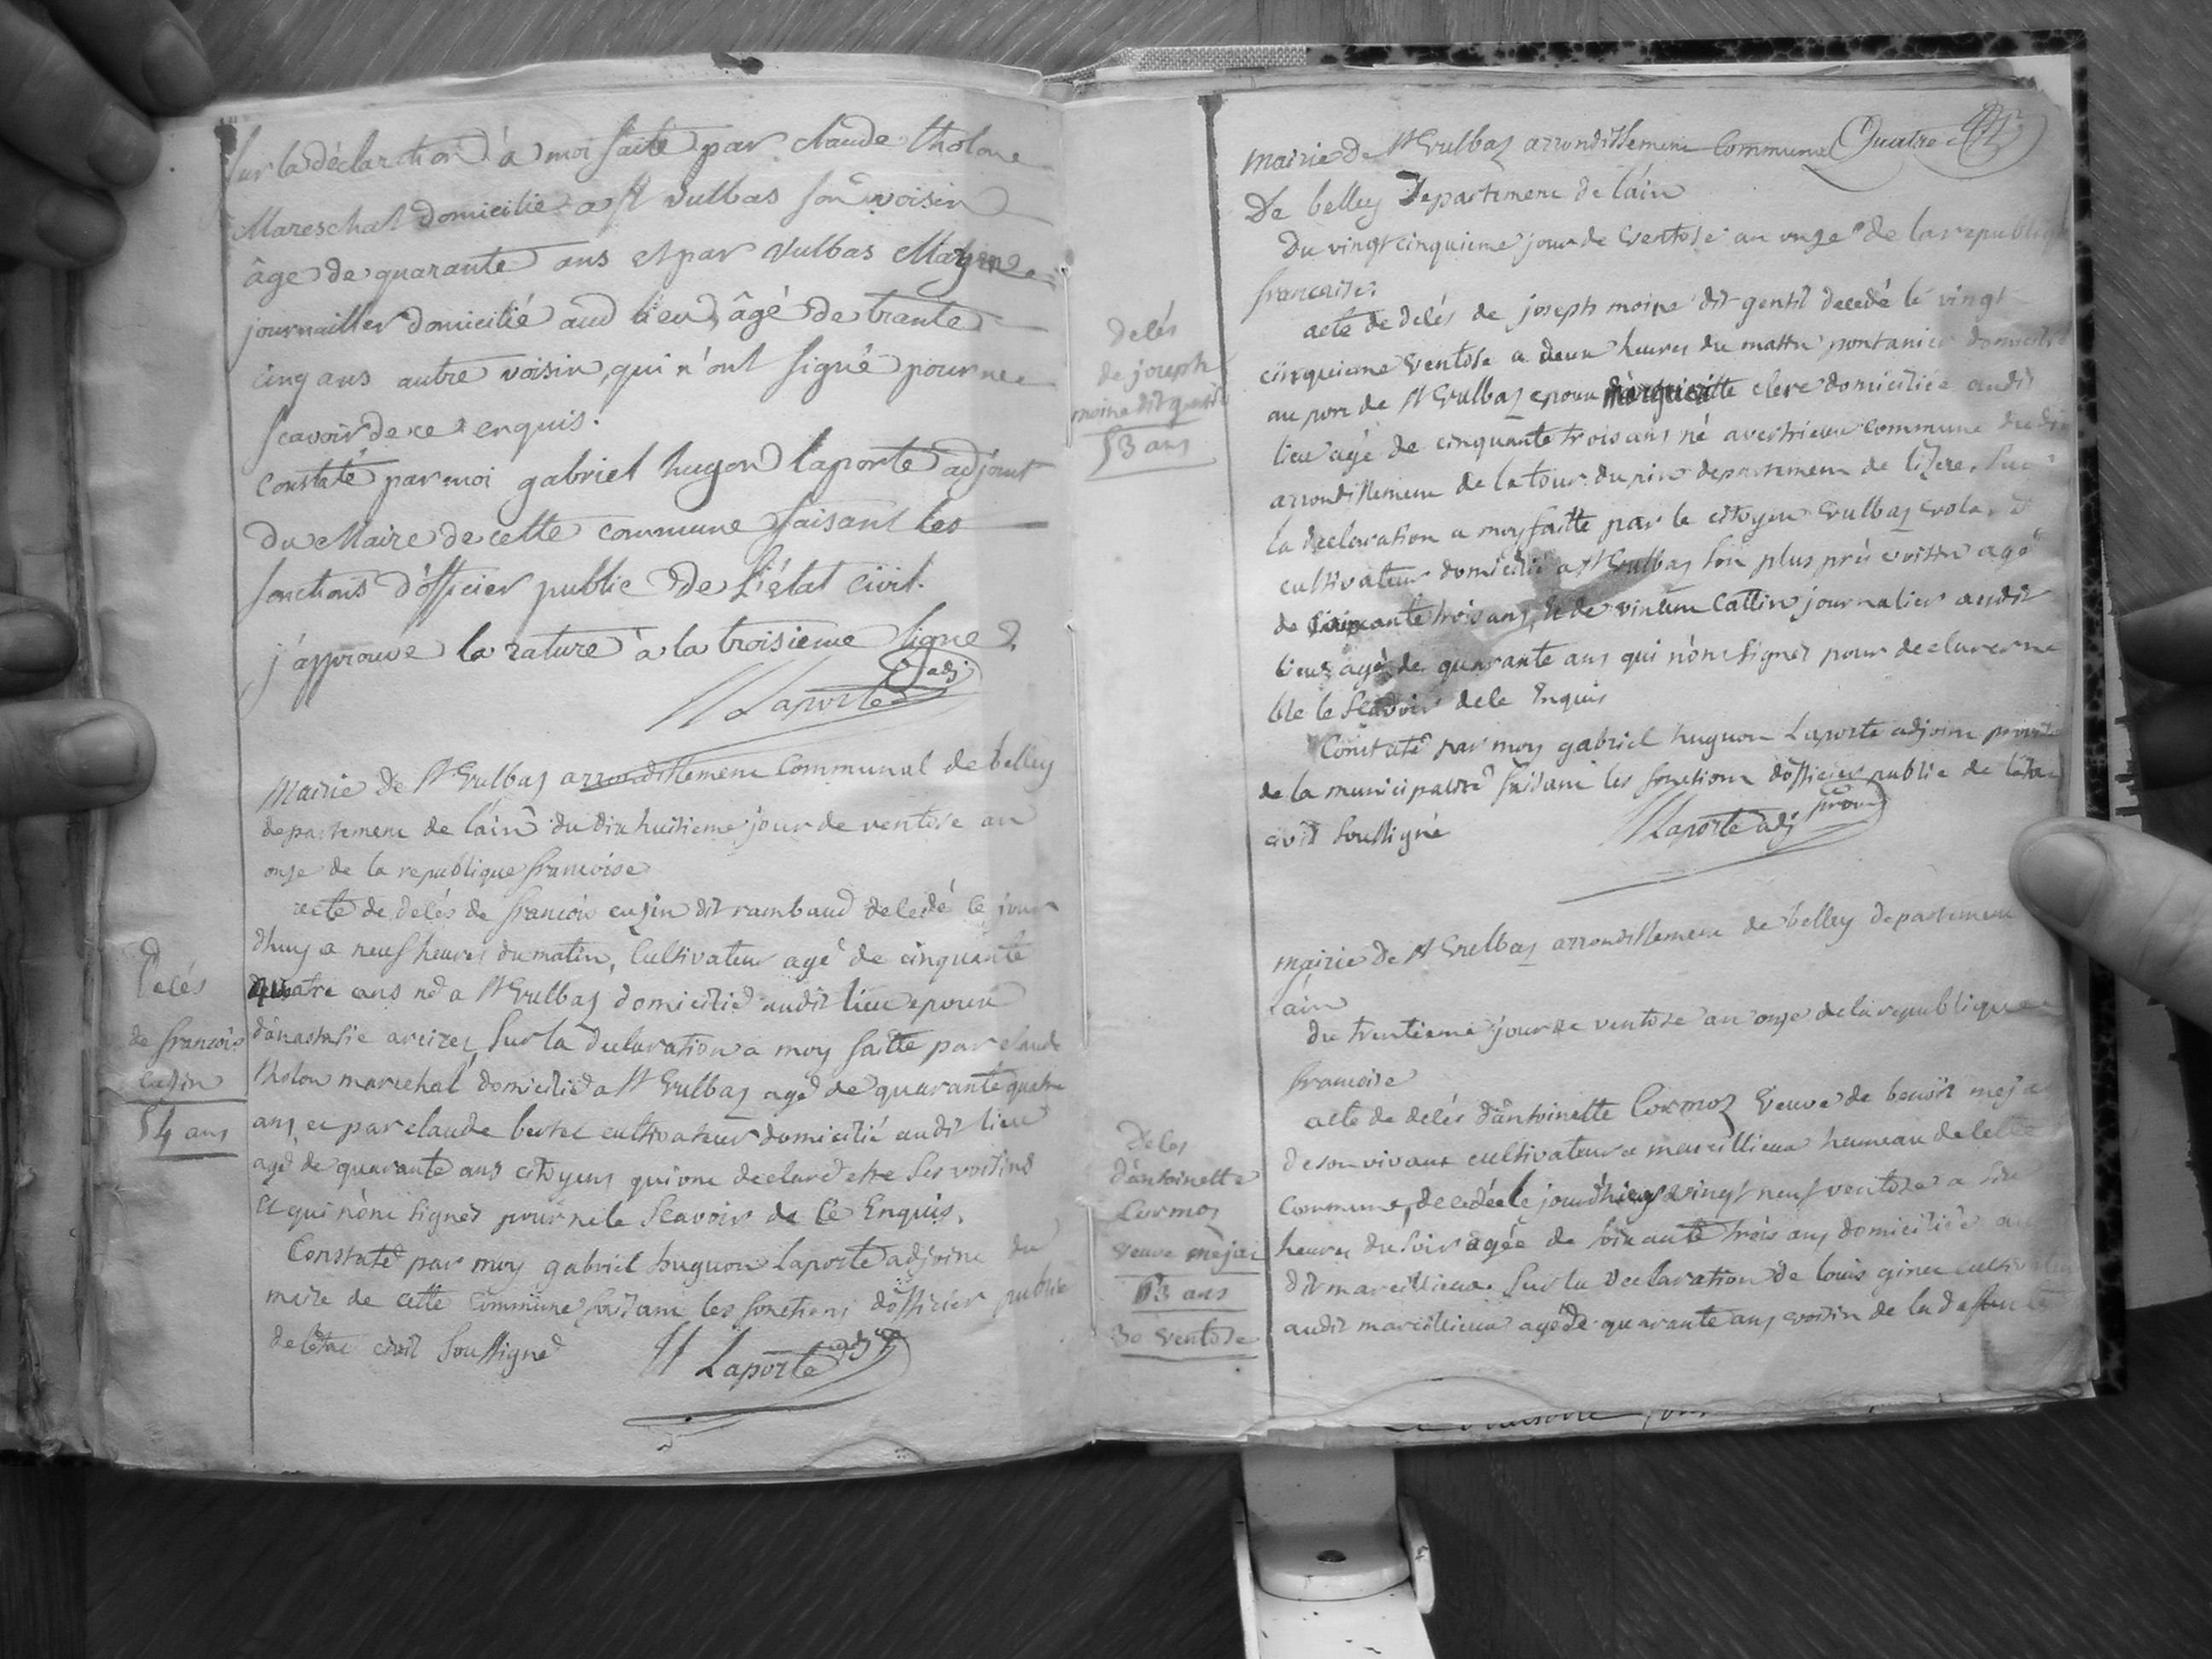 Sur la déclaration à moi faite par claude tholone
Mareschal domicilié a st vulbas son voisin
âge de quarante ans et par vulbas
journaillier domicilié aud lieu, âgé de trante
cinq ans autre voisin, qui n'ont signé pour ne
scavoir de ce enquis.
constaté par moi gabriel hugon laporte adjoint
du Maire de cette commune faisant les
fonctions d'officier public de l'état civil.
j'approuve la rature à la troisieme ligne.
Laporte adj
Mairie de St Vulbas arrondissement Communal de belley
departement de láin du dix huitieme jour de ventose an
onze de la republique francoise
acte de delés de francois cuzin dit rambaud deledé ce jour
dhuy a neuf heures du matin, Cultivateur agé de cinquante
quatre ans né a St Vulbas domicilié audit lieu epoux
Delés
de francois
cuzin
54 ans
dánastasie Sur la declaration a moy faitte par claude
tholon marechal domicilié a St Vulbas agé de quarante quatre
ans et par claude bertet cultivateur domicilié audit lieu
agé de quarante ans citoyens qui ont declaré etre ses voisins
et qui nónt signés pour ne le Scavoir de Ce Enquis.
Constaté par moy gabriel huguon laporte adjoint du
maire de cette Commune faisant les fonctions dófficier public
de létat civil Soussigné
Laporte adj
Mairie de St Vulbas arrondissement Communal Quatre
De belley Departement de láin
Du vingt cinquieme jour de Ventose an onze de la republique
francaise
acte de delés de joseph moine dit gentil decedé le vingt
cinquieme Ventose a deux heures du matin pontanier domicilié
au port de St Vulbas epoux margueritte clere domiciliée audit
lieu agé de cinquante trois ans né a commune dudit
arrondissement de la tour du pin departement de lizere, Sur
la declaration a moy faitte par le citoyen Vulbas
cultivateur domicilié a St Vulbas Son plus près voisin agé
de soixante trois ans, et de Cattin journalier audit
lieu agé de quarante ans qui nónt signés pour declarer ne
le Scavoir de Ce Enquis
Delés
de joseph
moine dit gentil
53 ans
Constaté par moy gabriel huguon Laporte adjoint
de la municipalité faisant les fonctions dófficier public de létat
civil Soussigné
Laporte adj prov
mairie de St Vulbas arrondissement de belley departement
láin
du trentieme jour de ventose an onze de la republique
francoise
acte de delés dántoinette Cormoz Veuve de benoit
de son vivant cultivateur a marcillieux hameau de cette
Commune, decedée le jour dhier vingt neuf ventose a Six
heures du Soir agée de Soixante trois ans domiciliée au
dit marcillieux. Sur la Declaration de louis ginet cultivateur
audit marcillieux agé de quarante ans voisin de la defunte
Deles
dántoinette
Cormoz
veuve mejat
63 ans
30 ventose